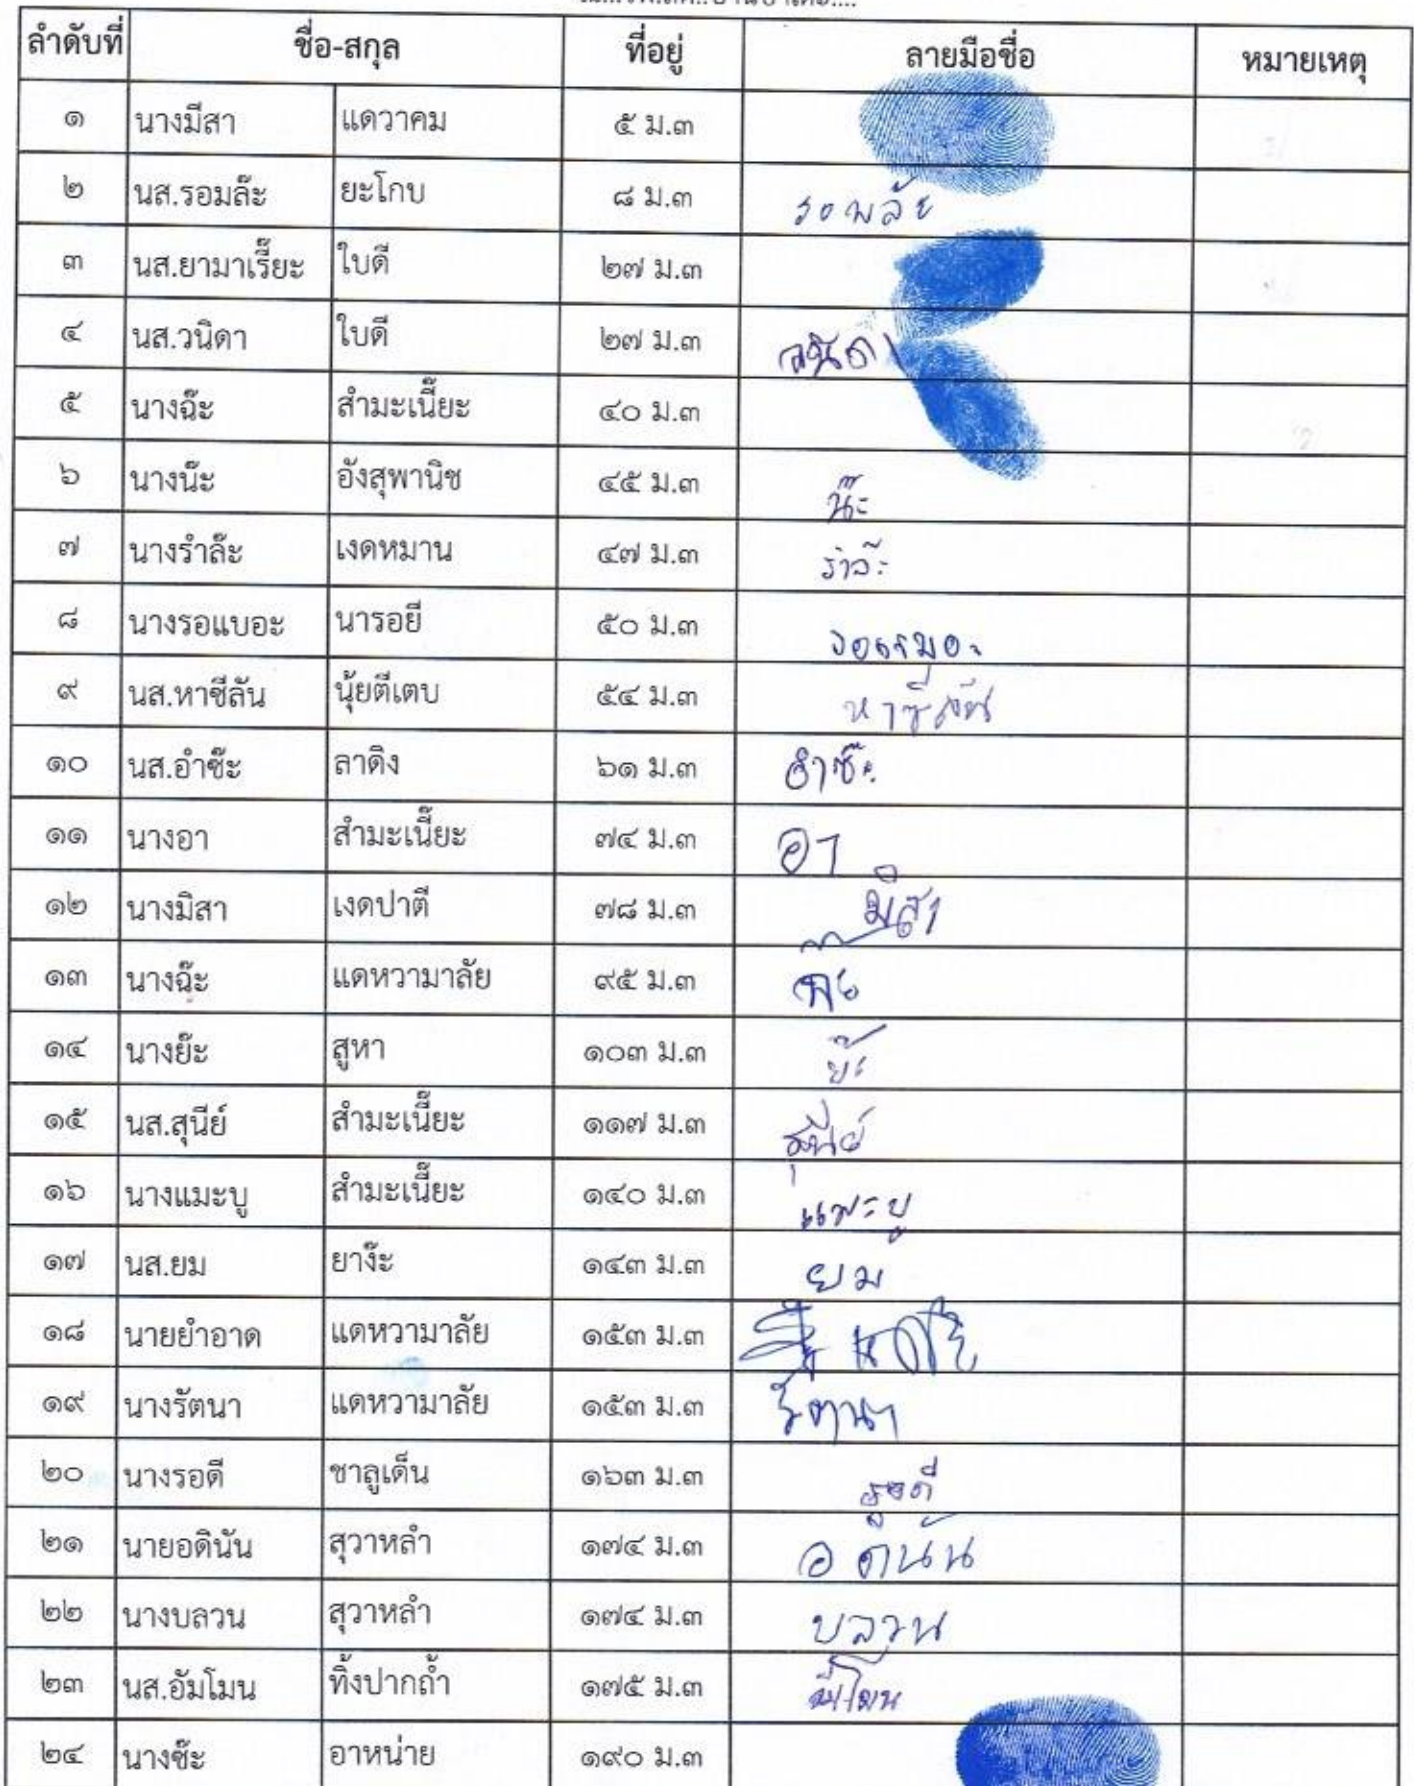 ลำดับที่ ชื่อ-สกุล ที่อยู่ ลายมือชื่อ หมายเหตุ
๑ นางมีสา แดวาคม ๕ ม.๓
๒ นส.รอมล๊ะ ยะโกบ ๘ ม.๓
๓ นส.ยามาเรี๊ยะ ใบดี ๒๗ ม.๓
๔ นส.วนิดา ใบดี ๒๗ ม.๓ วนิดา
๕ นางฉ๊ะ สำมะเนี๊ยะ ๔๐ ม.๓
๖ นางน๊ะ อังสุพานิช ๔๕ ม.๓ น๊ะ
๗ นางรำล๊ะ เงดหมาน ๔๗ ม.๓ รำล๊ะ
๘ นางรอแบอะ นารอยี ๕๐ ม.๓
๙ นส.หาซีลัน นุ้ยตีเตบ ๕๔ ม.๓ หาซีลัน
๑๐ นส.อำซ๊ะ ลาดิง ๖๑ ม.๓ อำซ๊ะ
๑๑ นางอา สำมะเนี๊ยะ ๗๔ ม.๓ อา
๑๒ นางมิสา เงดปาตี ๗๘ ม.๓ มิสา
๑๓ นางฉ๊ะ แดหวามาลัย ๙๕ ม.๓
๑๔ นางย๊ะ สูหา ๑๐๓ ม.๓ ย๊ะ
๑๕ นส.สุนีย์ สำมะเนี๊ยะ ๑๑๗ ม.๓ สุนีย์
๑๖ นางแมะบู สำมะเนี๊ยะ ๑๔๐ ม.๓ แมะบู
๑๗ นส.ยม ยาง๊ะ ๑๔๓ ม.๓ ยม
๑๘ นายยำอาด แดหวามาลัย ๑๕๓ ม.๓
๑๙ นางรัตนา แดหวามาลัย ๑๕๓ ม.๓ รัตนา
๒๐ นางรอดี ชาลูเด็น ๑๖๓ ม.๓ รอดี
๒๑ นายอดินัน สุวาหลำ ๑๗๔ ม.๓ อดินัน
๒๒ นางบลวน สุวาหลำ ๑๗๔ ม.๓ บลวน
๒๓ นส.อัมโมน ทิ้งปากถ้ำ ๑๗๕ ม.๓
๒๔ นางซ๊ะ อาหน่าย ๑๙๐ ม.๓